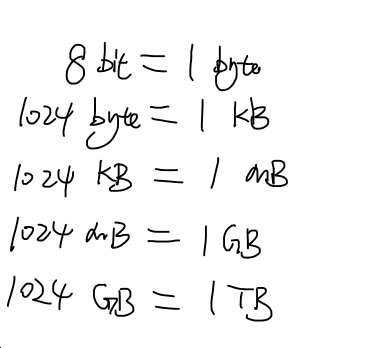 8 bit = 1 byte
1024 byte = 1 KB
1024 KB = 1 mB
1024 mB = 1 GB
1024 GB = 1 TB